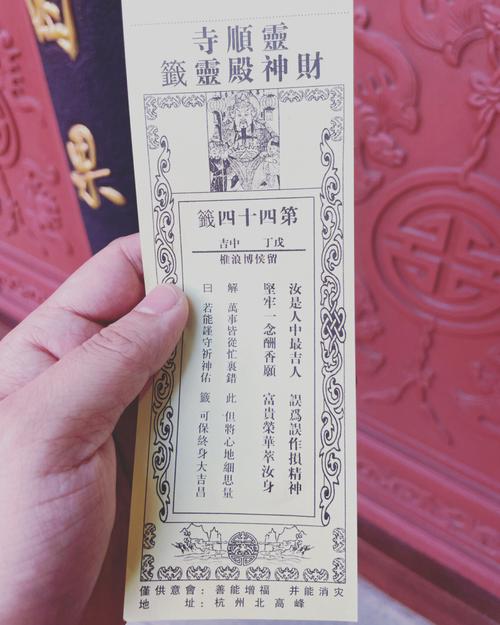 靈順寺
財神殿靈籤
第四十四籤
戊丁 中吉
留侯博浪椎
汝是人中最吉人 誤爲誤作損精神
堅牢一念酬香願 富貴榮華萃汝身
解 萬事皆從忙裏錯 此 但將心地細思量
曰 若能謹守祈神佑 籤 可保終身大吉昌
僅供意會：善能增福 并能消灾
地址：杭州北高峰